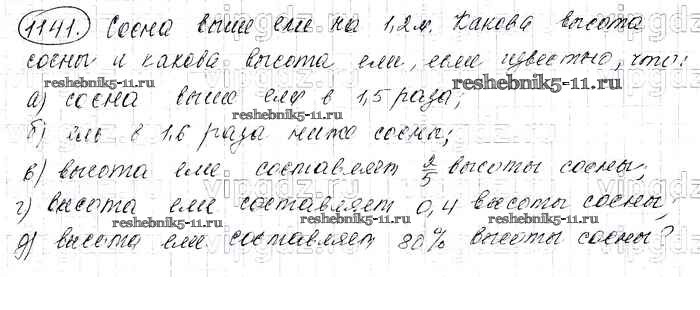 1141. Сосна выше ели на 1,2 м. Какова высота
сосны и какова высота ели, если известно, что:
а) сосна выше ели в 1,5 раза;
б) ель в 1,6 раза ниже сосны;
в) высота ели составляет 2/5 высоты сосны;
г) высота ели составляет 0,4 высоты сосны;
д) высота ели составляет 80% высоты сосны?
reshebnik5-11.ru
reshebnik5-11.ru
reshebnik5-11.ru
reshebnik5-11.ru
reshebnik5-11.ru
reshebnik5-11.ru